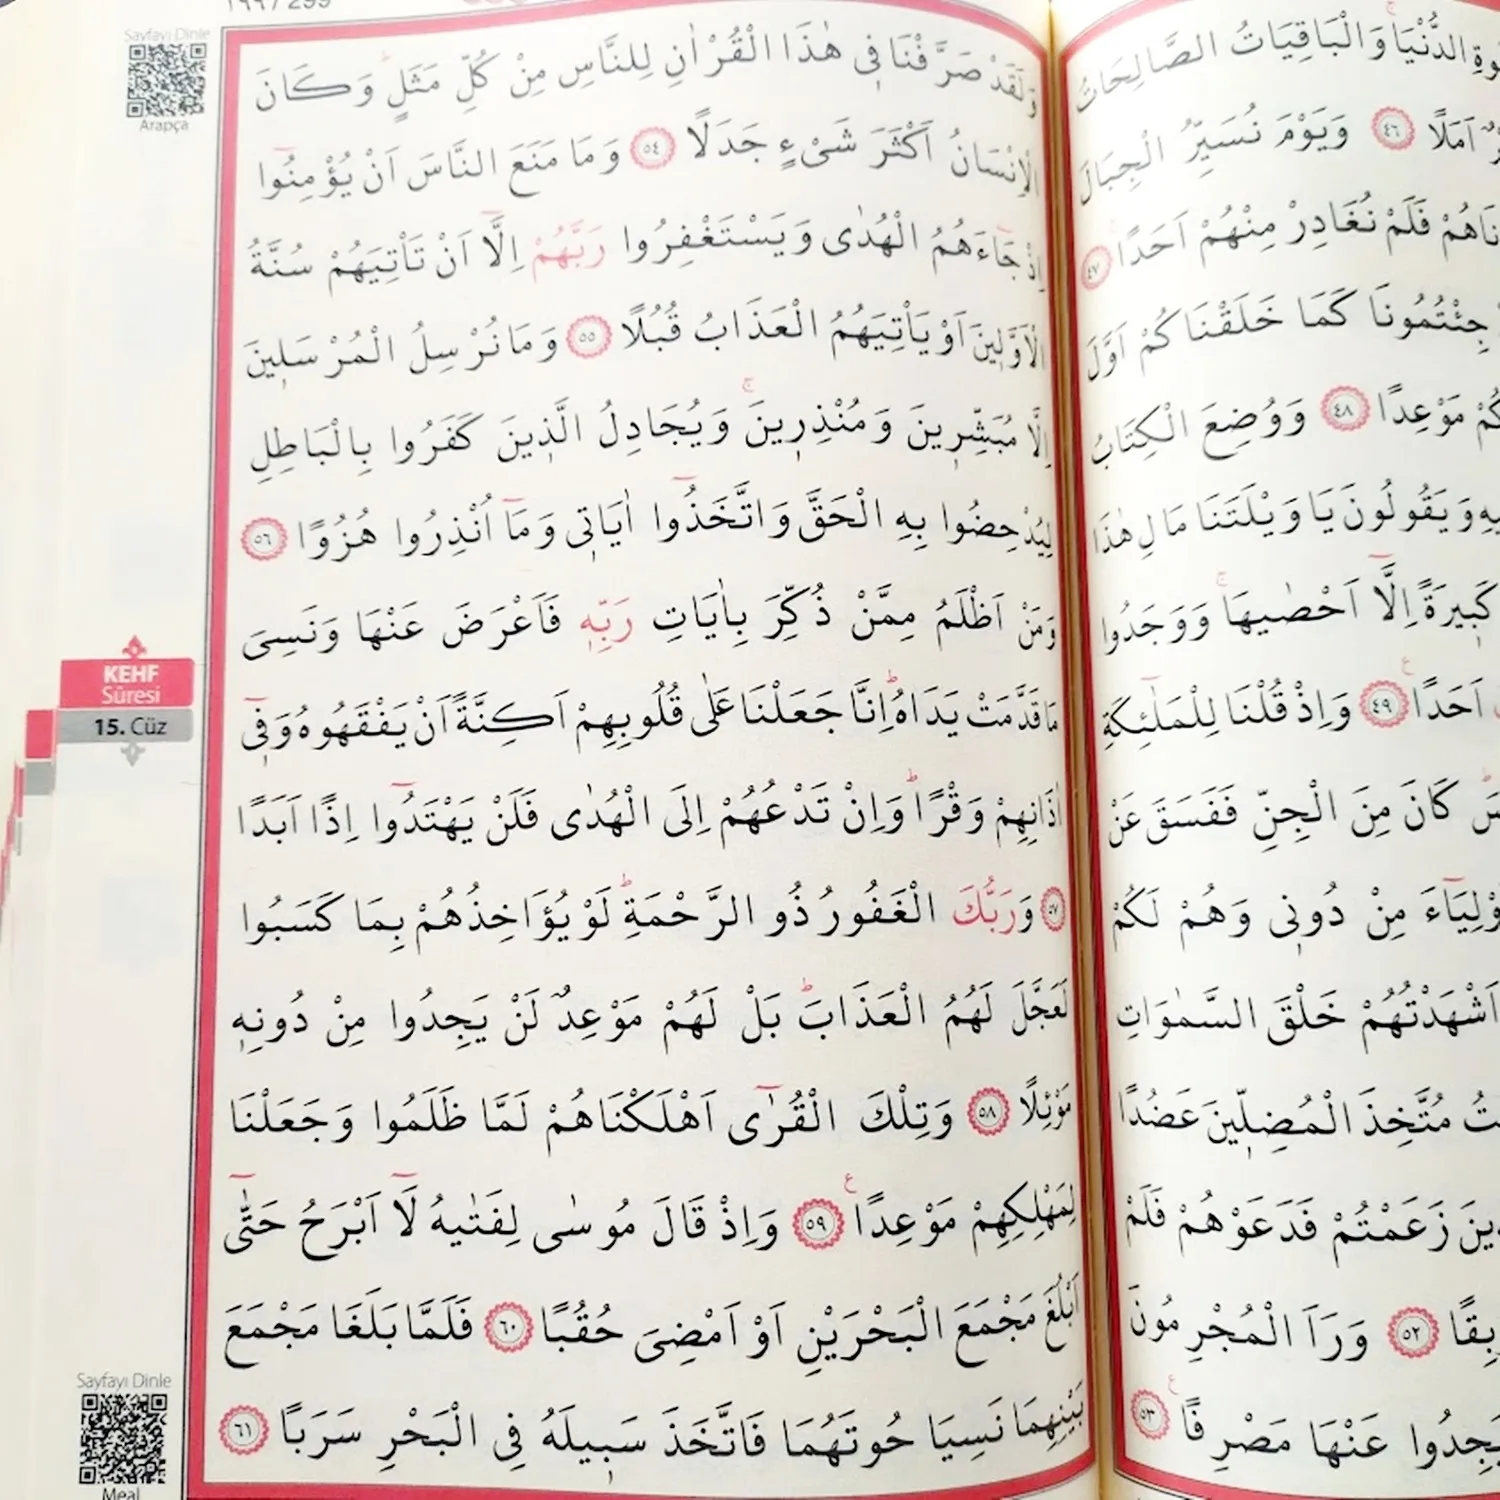 ١٩٩ / 299
Sayfayı Dinle
Arapça
وَلَقَدْ صَرَّفْنَا ف۪ي هٰذَا الْقُرْاٰنِ لِلنَّاسِ مِنْ كُلِّ مَثَلٍۜ وَكَانَ
الْاِنْسَانُ اَكْثَرَ شَيْءٍ جَدَلًا ﴿٥٤﴾ وَمَا مَنَعَ النَّاسَ اَنْ يُؤْمِنُٓوا
اِذْ جَٓاءَهُمُ الْهُدٰى وَيَسْتَغْفِرُوا رَبَّهُمْ اِلَّٓا اَنْ تَأْتِيَهُمْ سُنَّةُ
الْاَوَّل۪ينَ اَوْ يَأْتِيَهُمُ الْعَذَابُ قُبُلًا ﴿٥٥﴾ وَمَا نُرْسِلُ الْمُرْسَل۪ينَ
اِلَّا مُبَشِّر۪ينَ وَمُنْذِر۪ينَۚ وَيُجَادِلُ الَّذ۪ينَ كَفَرُوا بِالْبَاطِلِ
لِيُدْحِضُوا بِهِ الْحَقَّ وَاتَّخَذُٓوا اٰيَات۪ي وَمَٓا اُنْذِرُوا هُزُوًا ﴿٥٦﴾
وَمَنْ اَظْلَمُ مِمَّنْ ذُكِّرَ بِاٰيَاتِ رَبِّه۪ فَاَعْرَضَ عَنْهَا وَنَسِيَ
مَا قَدَّمَتْ يَدَاهُۜ اِنَّا جَعَلْنَا عَلٰى قُلُوبِهِمْ اَكِنَّةً اَنْ يَفْقَهُوهُ وَف۪ٓي
اٰذَانِهِمْ وَقْرًاۜ وَاِنْ تَدْعُهُمْ اِلَى الْهُدٰى فَلَنْ يَهْتَدُٓوا اِذًا اَبَدًا
﴿٥٧﴾ وَرَبُّكَ الْغَفُورُ ذُو الرَّحْمَةِۜ لَوْ يُؤَاخِذُهُمْ بِمَا كَسَبُوا
لَعَجَّلَ لَهُمُ الْعَذَابَۜ بَلْ لَهُمْ مَوْعِدٌ لَنْ يَجِدُوا مِنْ دُونِه۪
مَوْئِلًا ﴿٥٨﴾ وَتِلْكَ الْقُرٰٓى اَهْلَكْنَاهُمْ لَمَّا ظَلَمُوا وَجَعَلْنَا
لِمَهْلِكِهِمْ مَوْعِدًا۟ ﴿٥٩﴾ وَاِذْ قَالَ مُوسٰى لِفَتٰيهُ لَٓا اَبْرَحُ حَتّٰٓى
اَبْلُغَ مَجْمَعَ الْبَحْرَيْنِ اَوْ اَمْضِيَ حُقُبًا ﴿٦٠﴾ فَلَمَّا بَلَغَا مَجْمَعَ
بَيْنِهِمَا نَسِيَا حُوتَهُمَا فَاتَّخَذَ سَب۪يلَهُ فِي الْبَحْرِ سَرَبًا ﴿٦١﴾
KEHF
Sûresi
15. Cüz
Sayfayı Dinle
Meal
الدُّنْيَاۚ وَالْبَاقِيَاتُ الصَّالِحَاتُ
اَمَلًا ﴿٤٦﴾ وَيَوْمَ نُسَيِّرُ الْجِبَالَ
فَلَمْ نُغَادِرْ مِنْهُمْ اَحَدًا ﴿٤٧﴾
جِئْتُمُونَا كَمَا خَلَقْنَاكُمْ اَوَّلَ
مَوْعِدًا ﴿٤٨﴾ وَوُضِعَ الْكِتَابُ
وَيَقُولُونَ يَا وَيْلَتَنَا مَالِ هٰذَا
كَب۪يرَةً اِلَّٓا اَحْصٰيهَاۚ وَوَجَدُوا
اَحَدًا۟ ﴿٤٩﴾ وَاِذْ قُلْنَا لِلْمَلٰٓئِكَةِ
كَانَ مِنَ الْجِنِّ فَفَسَقَ عَنْ
مِنْ دُون۪ي وَهُمْ لَكُمْ
اَشْهَدْتُهُمْ خَلْقَ السَّمٰوَاتِ
مُتَّخِذَ الْمُضِلّ۪ينَ عَضُدًا
زَعَمْتُمْ فَدَعَوْهُمْ فَلَمْ
﴿٥٢﴾ وَرَاَ الْمُجْرِمُونَ
عَنْهَا مَصْرِفًا۟ ﴿٥٣﴾